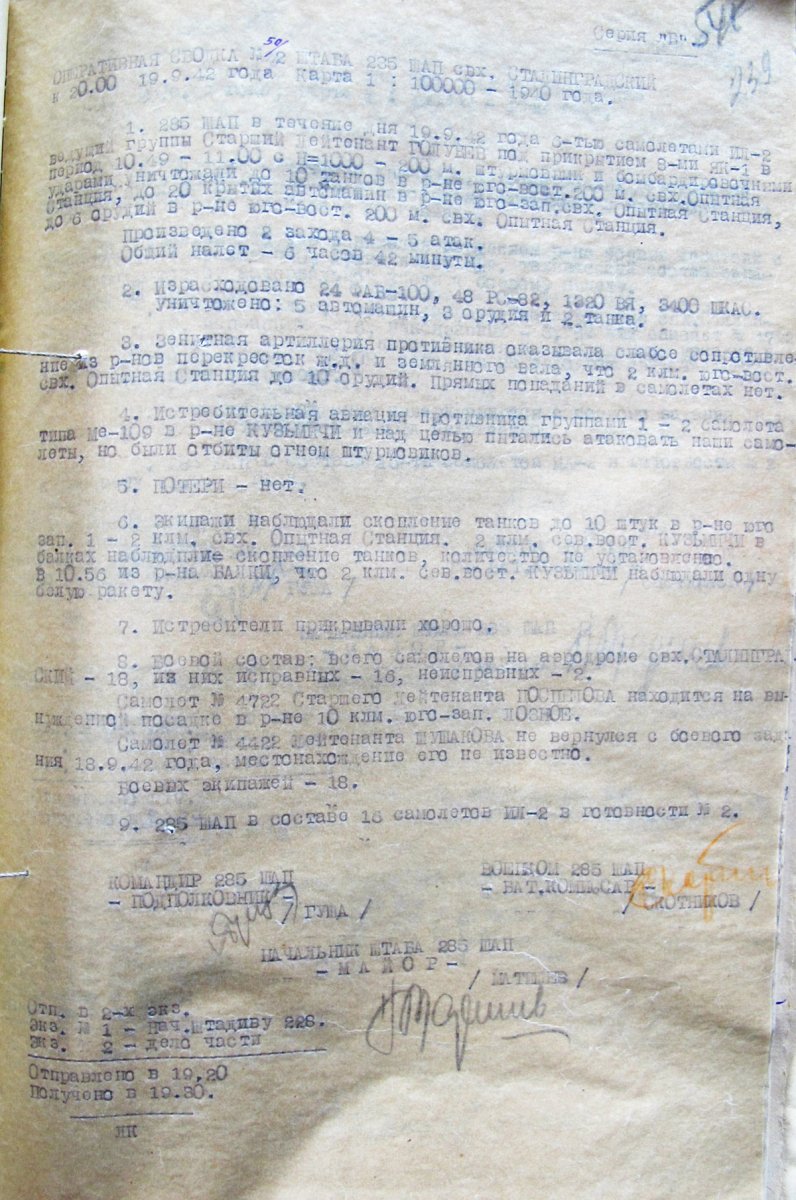 Серия "Б"
239
50/
ОПЕРАТИВНАЯ СВОДКА № 2 ШТАБА 285 ШАП свх. СТАЛИНГРАДСКИЙ
к 20.00 19.9.42 года Карта 1 : 100000 - 1940 года.
1. 285 ШАП в течение дня 19.9.42 года 6-тью самолетами ИЛ-2
ведущий группы Старший Лейтенант ГОЛУБЕВ под прикрытием 8-ми ЯК-1 в
период 10.49 - 11.00 с Н=1000 - 200 м. штурмовыми и бомбардировочными
ударами уничтожали до 10 танков в р-не юго-вост.200 м. свх.Опытная
Станция, до 20 крытых автомашин в р-не юго-зап.свх. Опытная Станция,
до 6 орудий в р-не юго-вост. 200 м. свх. Опытная Станция.
Произведено 2 захода 4 - 5 атак.
Общий налет - 6 часов 42 минуты.
2. Израсходовано 24 ФАБ-100, 48 РС-82, 1320 ВЯ, 3400 ШКАС.
уничтожено: 5 автомашин, 3 орудия и 2 танка.
3. Зенитная артиллерия противника оказывала слабое сопротивле-
ние из р-нов перекресток ж.д. и земляного вала, что 2 клм. юго-вост.
свх. Опытная Станция до 10 орудий. Прямых попаданий в самолетах нет.
4. Истребительная авиация противника группами 1 - 2 самолета
типа Ме-109 в р-не КУЗЬМИЧИ и над целью пытались атаковать наши само-
леты, но были отбиты огнем штурмовиков.
5. ПОТЕРИ - нет.
6. Экипажи наблюдали скопление танков до 10 штук в р-не юго
зап. 1 - 2 клм. свх. Опытная Станция. 2 клм. сев.вост. КУЗЬМИЧИ в
балках наблюдплие скопление танков, количество не установлено.
В 10.56 из р-на БАЛКИ, что 2 клм. сев.вост. КУЗЬМИЧИ наблюдали одну
белую ракету.
7. Истребители прикрывали хорошо.
8. Боевой состав: всего самолетов на аэродроме свх.СТАЛИНГРАД
СКИЙ - 18, из них исправных - 16, неисправных - 2.
Самолет № 4722 Старшего Лейтенанта ПОСПЕЛОВА находится на вы-
нужденной посадке в р-не 10 клм. юго-зап. ЛОЗНОЕ.
Самолет № 4422 Лейтенанта ШУШАКОВА не вернулся с боевого зад-
ния 18.9.42 года, местонахождение его не известно.
Боевых экипажей - 18.
9. 285 ШАП в составе 16 самолетов ИЛ-2 в готовности № 2.
КОМАНДИР 285 ШАП
- ПОДПОЛКОВНИК -
/ ГУЩА /
ВОЕНКОМ 285 ШАП
- БАТ.КОМИССАР -
/ СКОТНИКОВ /
НАЧАЛЬНИК ШТАБА 285 ШАП
- М А Й О Р -
/ МАТЫШЕВ /
Отп. в 2-х экз.
Экз. № 1 - нач.штадиву 228.
Экз. № 2 - дело части
Отправлено в 19.20
Получено в 19.30.
ЯК